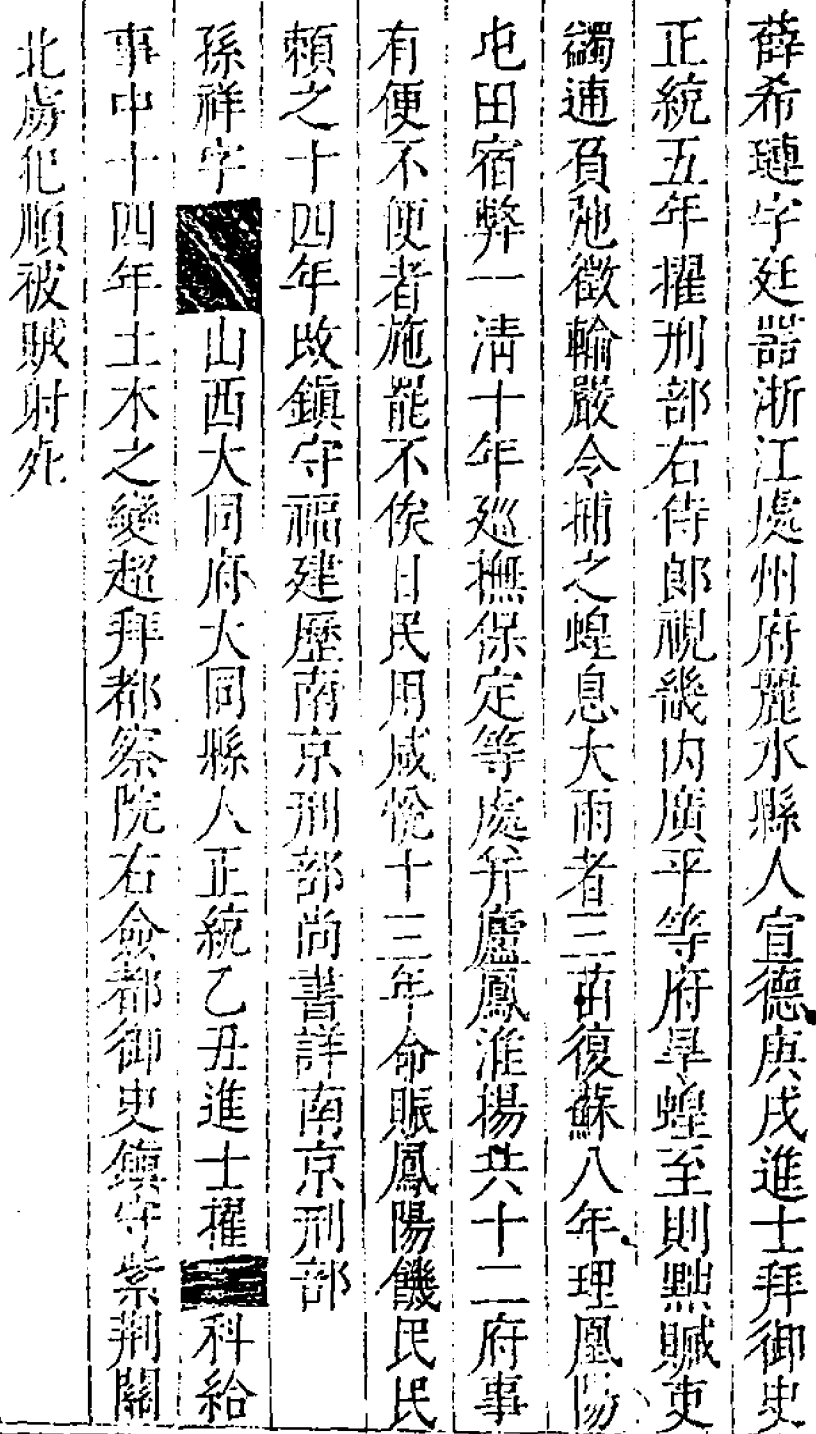 薛希璉字廷噐浙江處州府麗水縣人宣德庚戌進士拜御史
正統五年擢刑部右侍郎視畿内廣平等府旱蝗至則黜贓吏
蠲逋負弛徵輸嚴令捕之蝗息大雨者三苗復蘇八年理鳳陽
屯田宿弊一清十年廵撫保定等處并廬鳳淮揚共十二府事
有便不便者施罷不俟日民用咸悅十三年命賑鳳陽饑民民
頼之十四年改鎮守福建歷南京刑部尚書詳南京刑部
孫祥字山西大同府大同縣人正統乙丑進士擢科給
事中十四年土木之變超拜都察院右僉都御史鎮守紫荆關
北虜犯順被賊射死